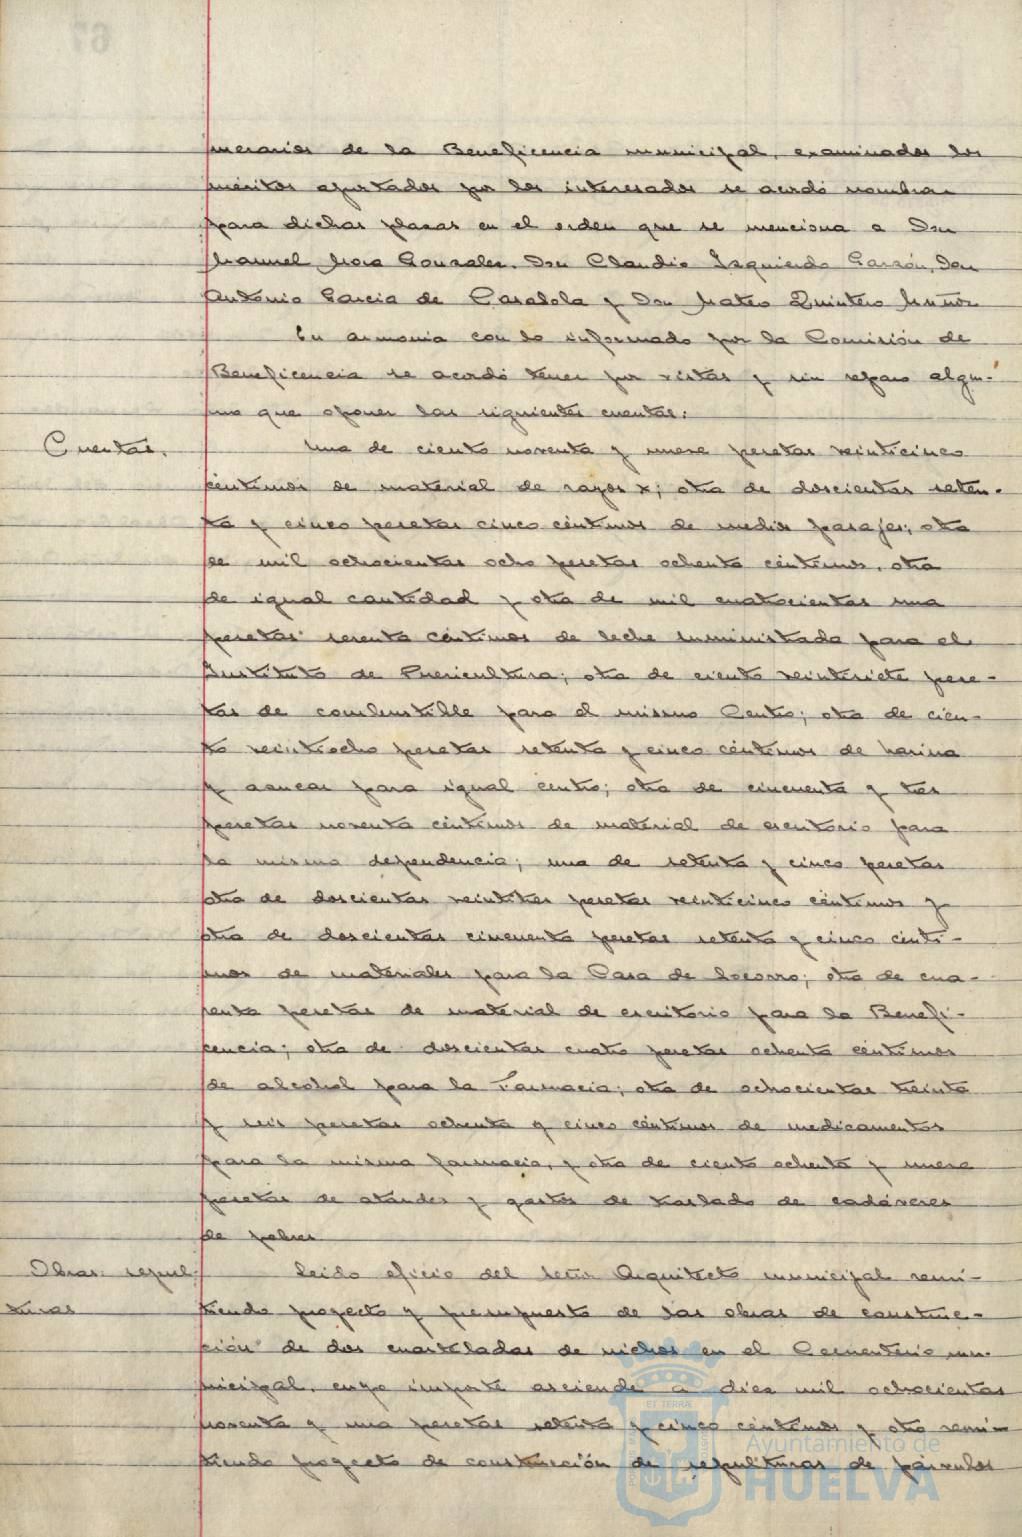 merarios de la Beneficencia municipal, examinados los
méritos aportados por los interesados se acordó nombrar
para dichas plazas en el orden que se menciona a Don
Manuel Mora Gonzalez, Don Claudio Izquierdo Garzón, Don
Antonio Garcia de Casasola y Don Mateo Quintero Muñoz
En armonia con lo informado por la Comisión de
Beneficencia se acordó tener por vistas y sin reparo algu-
no que oponer las siguientes cuentas:
Cuentas.
Una de ciento noventa y nueve pesetas veinticinco
céntimos de material de rayos x; otra de doscientas seten-
ta y cinco pesetas cinco céntimos de medios pasajes; otra
de mil ochocientas ocho pesetas ochenta céntimos, otra
de igual cantidad y otra de mil cuatrocientas una
pesetas sesenta céntimos de leche suministrada para el
Instituto de Puericultura; otra de ciento veintisiete pese-
tas de combustible para el mismo Centro; otra de cien-
to veintiocho pesetas setenta y cinco céntimos de harina
y azucar para igual centro; otra de cincuenta y tres
pesetas noventa céntimos de material de escritorio para
la misma dependencia; una de setenta y cinco pesetas
otra de doscientas veintitres pesetas veinticinco céntimos y
otra de doscientas cincuenta pesetas setenta y cinco cénti-
mos de materiales para la Casa de Socorro; otra de cua-
renta pesetas de material de escritorio para la Benefi-
cencia; otra de doscientas cuatro pesetas ochenta céntimos
de alcohol para la Farmacia; otra de ochocientas treinta
y seis pesetas ochenta y cinco céntimos de medicamentos
para la misma farmacia, y otra de ciento ochenta y nueve
pesetas de ataudes y gastos de traslado de cadáveres
de pobres
Obras: sepul-
turas
Leido oficio del señor Arquitecto municipal remi-
tiendo proyecto y presupuesto de las obras de construc-
ción de dos cuarteladas de nichos en el Cementerio mu-
nicipal, cuyo importe asciende a diez mil ochocientas
noventa y una pesetas setenta y cinco céntimos y otro remi-
tiendo proyecto de construcción de sepulturas de párvulos
Ayuntamiento de
HUELVA